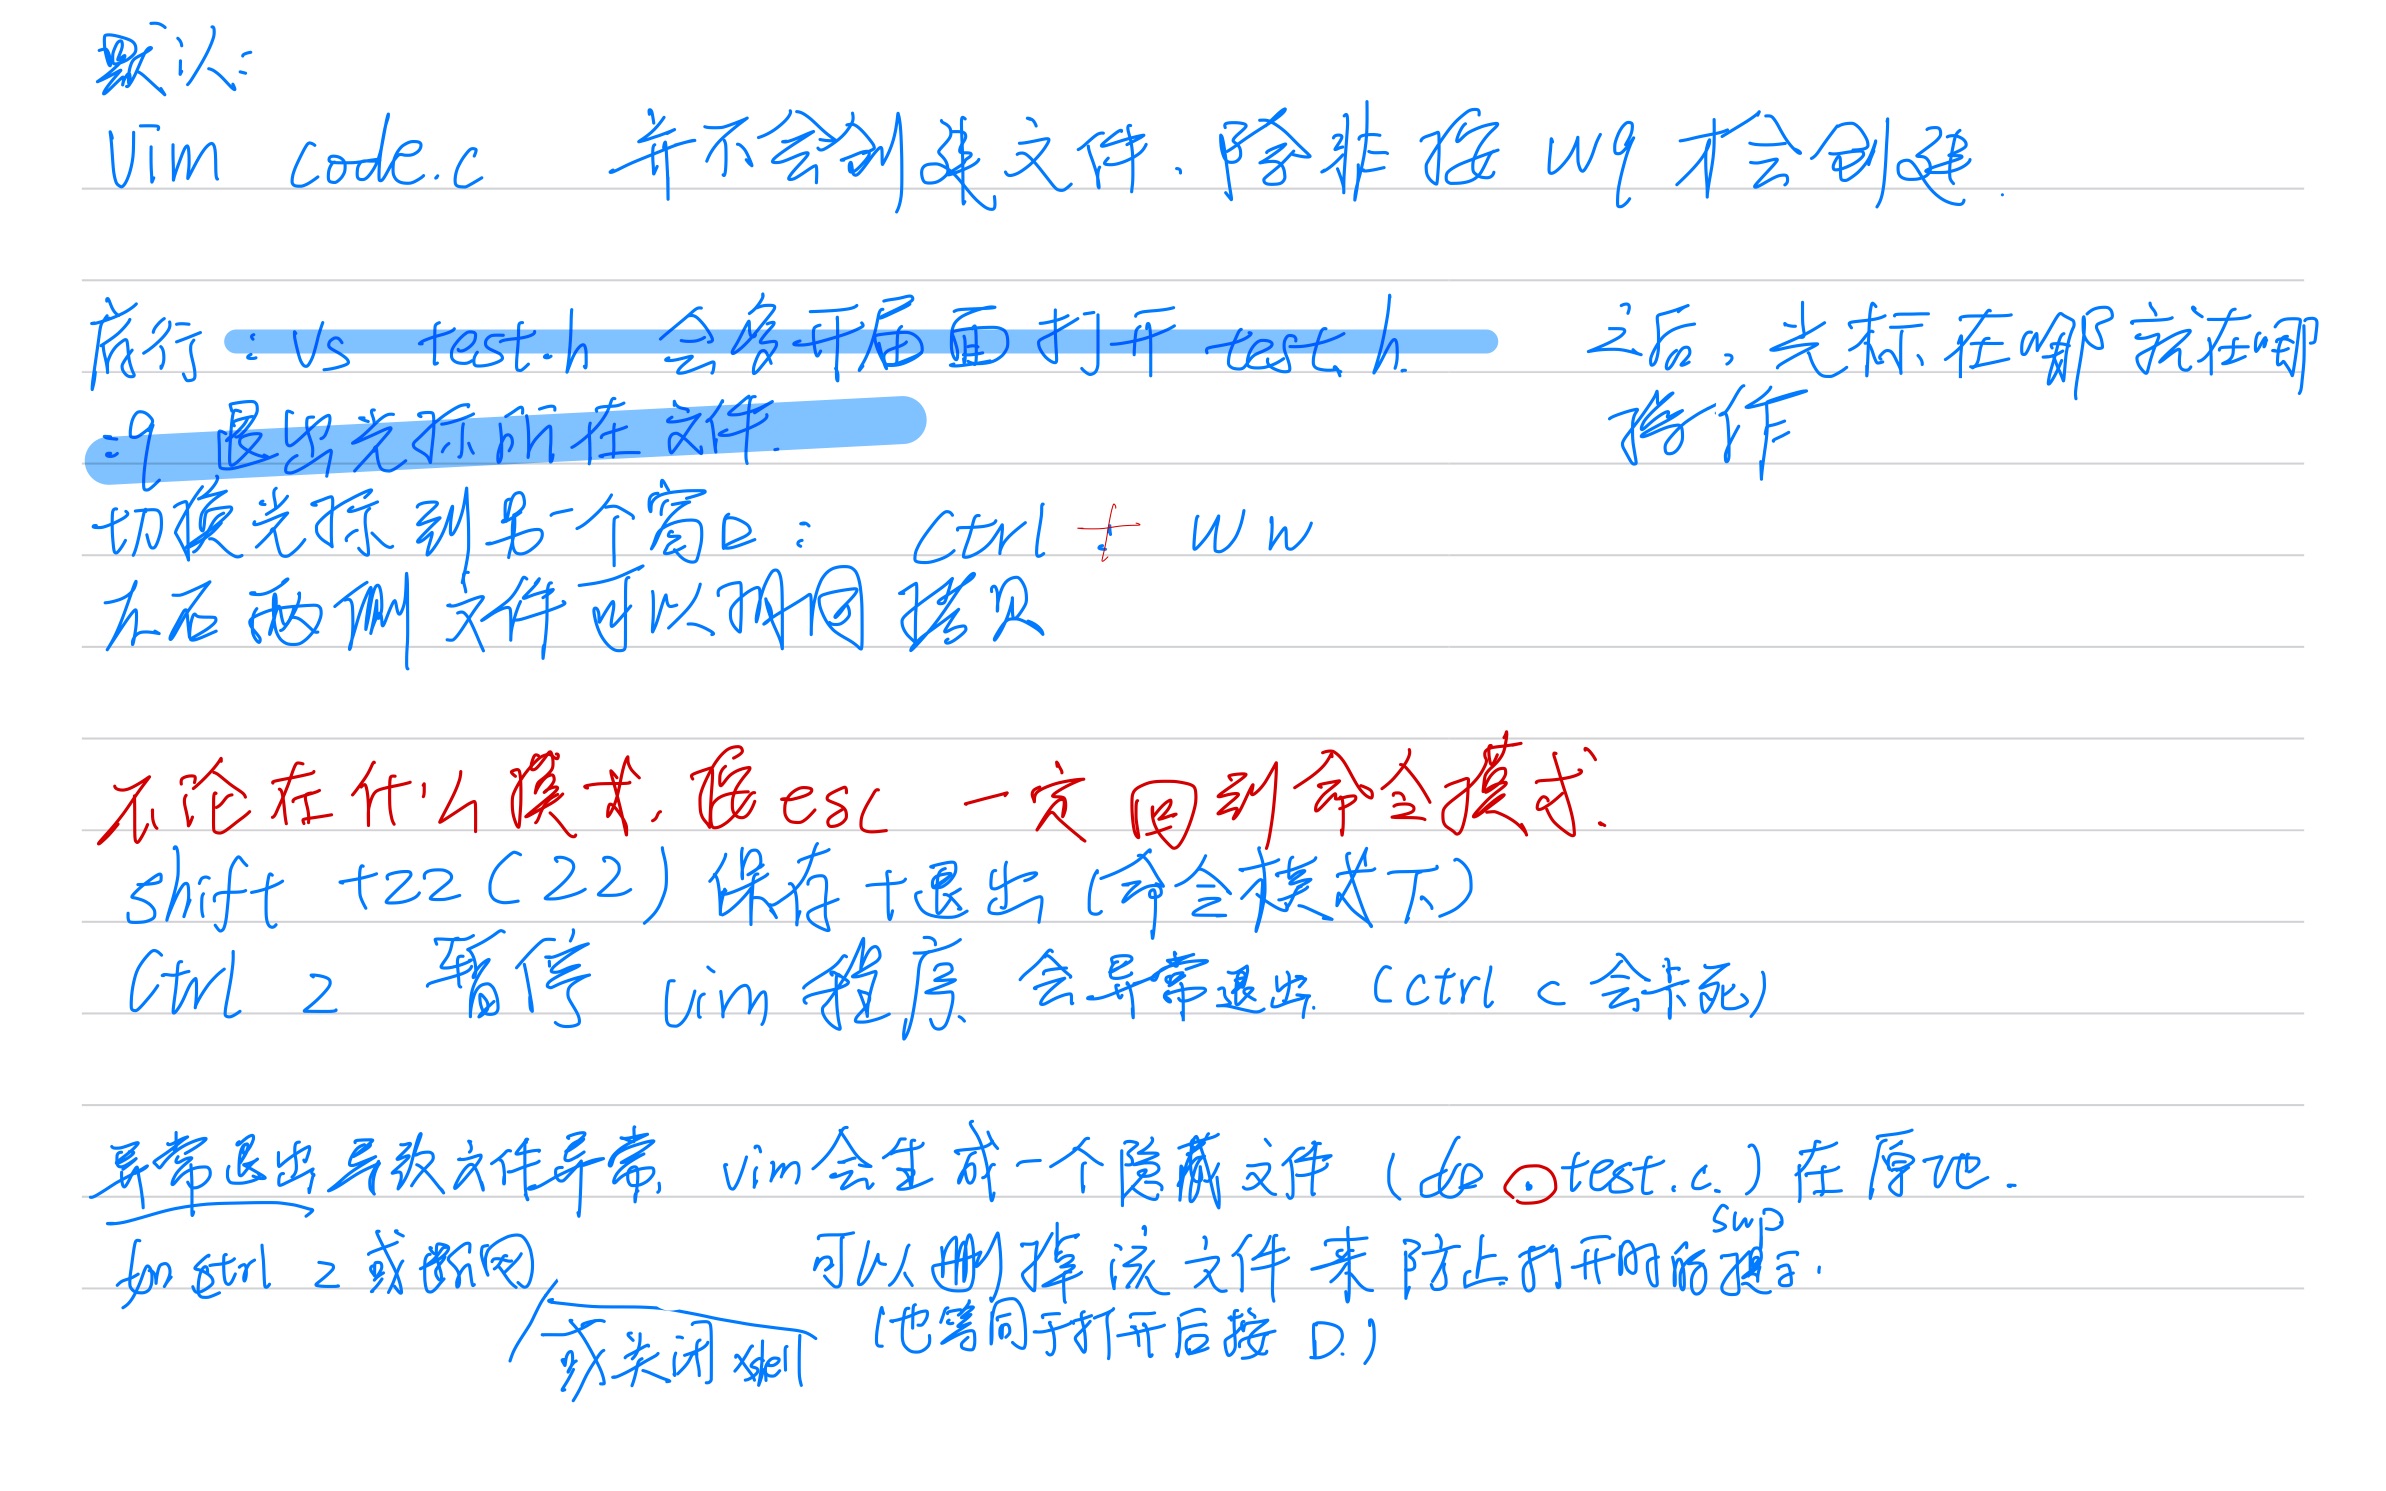 默认:
Vim code.c 并不会创建文件. 除非按 wq 才会创建.
底行 :vs test.h 会多开屏面打开 test.h 之后. 光标在哪就在哪
操作
:q 退出光标所在文件.
切换光标到另一个窗口: Ctrl + WW
左右两侧文件可以时间拷贝
不论在什么模式. 按esc 一定回到命令模式.
shift +zz (ZZ) 保存+退出 (命令模式下)
Ctrl z 暂停 vim 程序 会异常退出. (ctrl c 会卡死)
异常退出导致文件异常, vim会生成一个隐藏文件 ( . test.c.) 在原地.
如 ctrl z 或断网, 可以删掉该文件来防止打开时的提示.
swp
(也等同于打开后按 D.)
或关闭